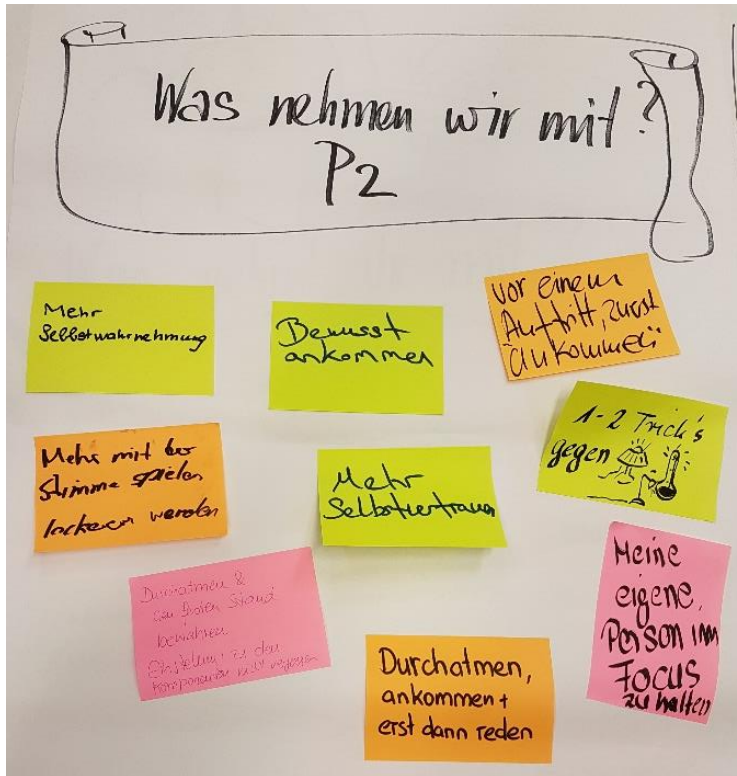 Was nehmen wir mit?
P2
Mehr
Selbstwahrnehmung
Bewusst
ankommen
vor einem
Auftritt, zuerst
"ankommen"
Mehr mit der
Stimme spielen
lockerer werden
Mehr
Selbstvertrauen
1-2 Trick's
gegen
Durchatmen &
den festen Stand
bewahren
Einstellung zu den
Komponenten nicht
Durchatmen,
ankommen +
erst dann reden
Meine
eigene
Person im
Focus
zu halten